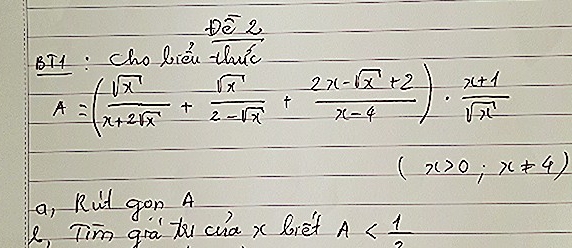 Đề 2
BT1 : Cho biểu thức
A = (√x / (x+2√x) + √x / (2-√x) + (2x-√x+2) / (x-4)) . (x+1) / √x
(x>0 ; x≠4)
a, Rút gọn A
b, Tìm giá trị của x biết A < 1/